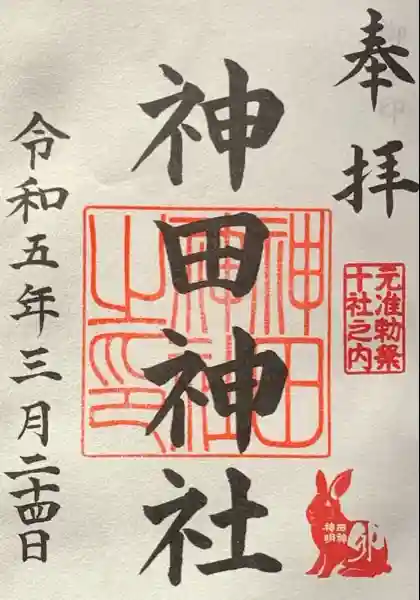 奉拝
元准勅祭
十社之内
神田神社
神田神社之印
神田神明
卯
令和五年三月二十四日